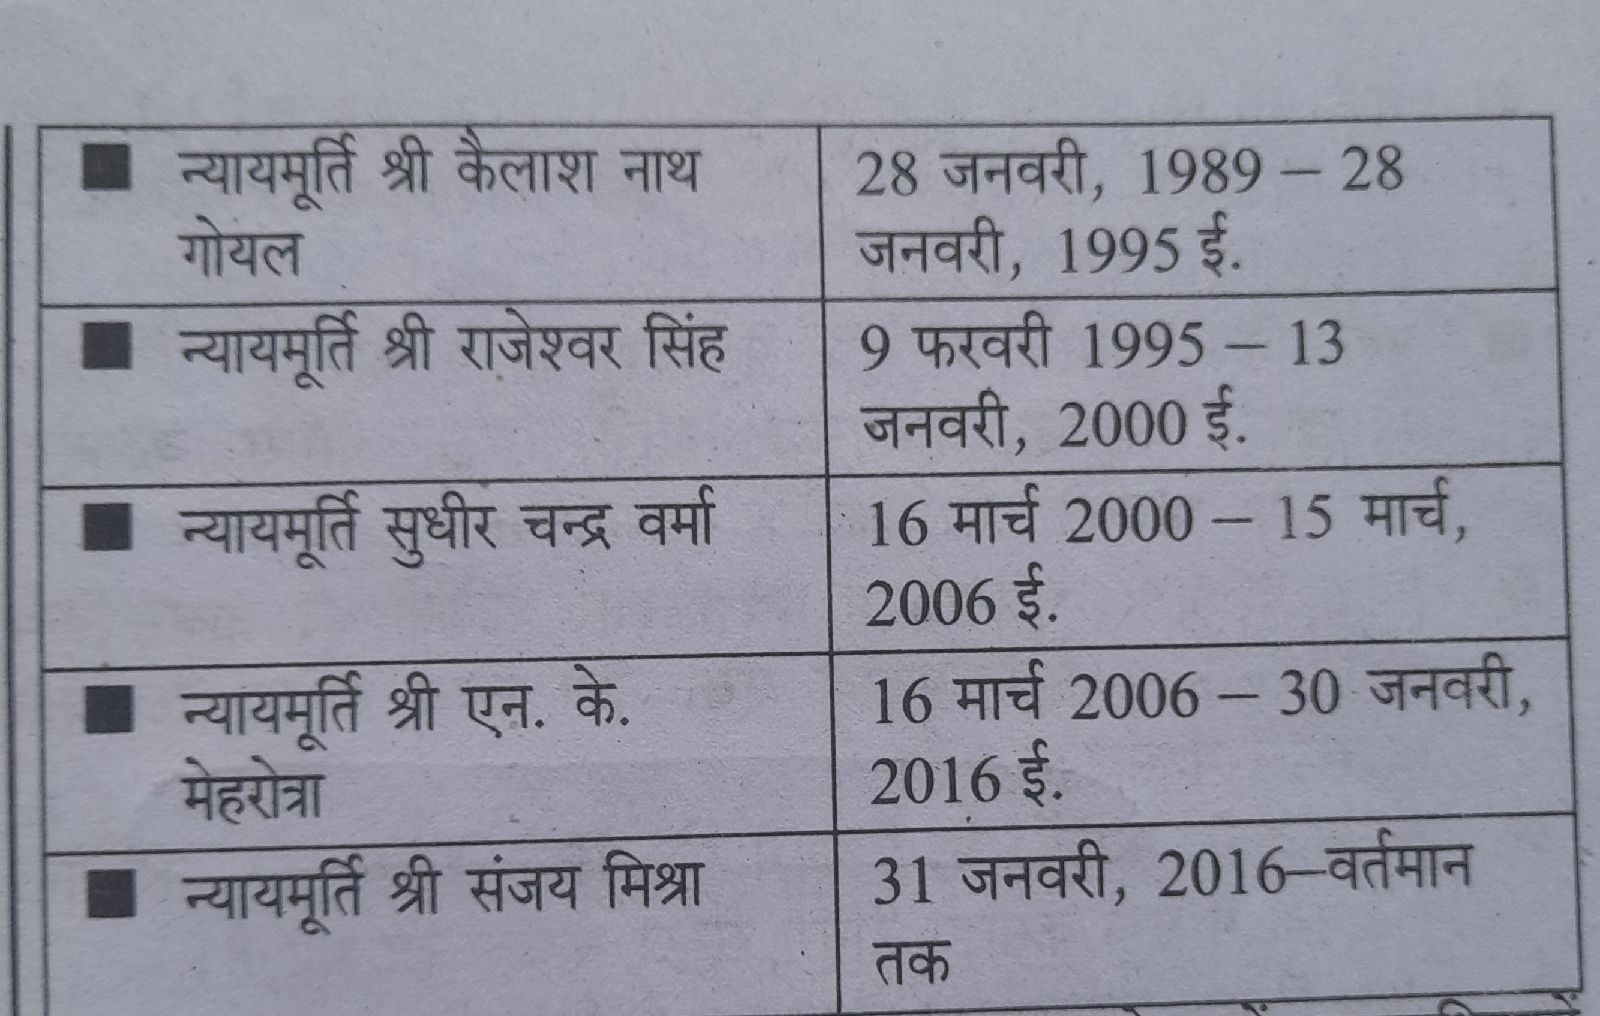 ■ न्यायमूर्ति श्री कैलाश नाथ
गोयल
28 जनवरी, 1989 – 28
जनवरी, 1995 ई.
■ न्यायमूर्ति श्री राजेश्वर सिंह
9 फरवरी 1995 – 13
जनवरी, 2000 ई.
■ न्यायमूर्ति सुधीर चन्द्र वर्मा
16 मार्च 2000 – 15 मार्च,
2006 ई.
■ न्यायमूर्ति श्री एन. के.
मेहरोत्रा
16 मार्च 2006 – 30 जनवरी,
2016 ई.
■ न्यायमूर्ति श्री संजय मिश्रा
31 जनवरी, 2016–वर्तमान
तक